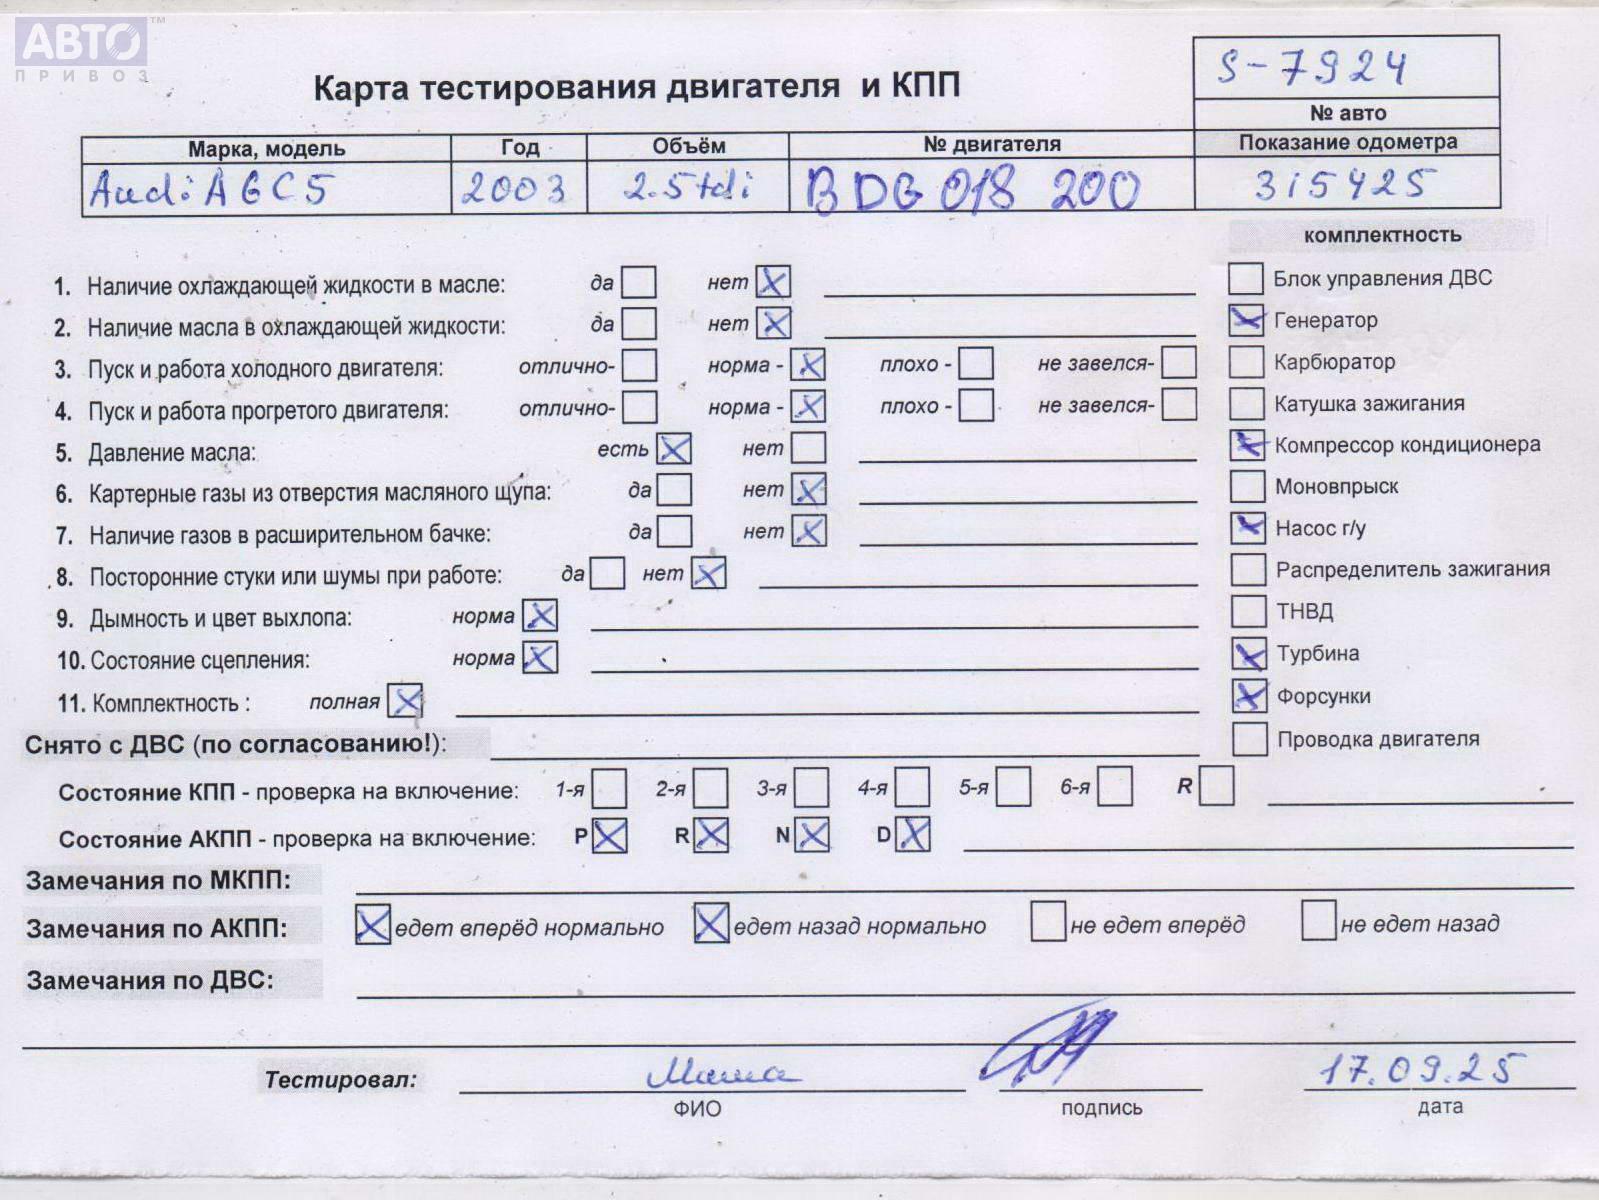 АВТО™
ПРИВОЗ
Карта тестирования двигателя и КПП
S-7924
№ авто
Марка, модель Год Объём № двигателя Показание одометра
Audi A6C5 2003 2.5tdi BDG 018 200 315425
комплектность
1. Наличие охлаждающей жидкости в масле: да нет Блок управления ДВС
2. Наличие масла в охлаждающей жидкости: да нет Генератор
3. Пуск и работа холодного двигателя: отлично- норма - плохо - не завелся- Карбюратор
4. Пуск и работа прогретого двигателя: отлично- норма - плохо - не завелся- Катушка зажигания
5. Давление масла: есть нет Компрессор кондиционера
6. Картерные газы из отверстия масляного щупа: да нет Моновпрыск
7. Наличие газов в расширительном бачке: да нет Насос г/у
8. Посторонние стуки или шумы при работе: да нет Распределитель зажигания
9. Дымность и цвет выхлопа: норма ТНВД
10. Состояние сцепления: норма Турбина
11. Комплектность : полная Форсунки
Снято с ДВС (по согласованию!): Проводка двигателя
Состояние КПП - проверка на включение: 1-я 2-я 3-я 4-я 5-я 6-я R
Состояние АКПП - проверка на включение: P R N D
Замечания по МКПП:
Замечания по АКПП: едет вперёд нормально едет назад нормально не едет вперёд не едет назад
Замечания по ДВС:
Тестировал: Миша 17.09.25
ФИО подпись дата